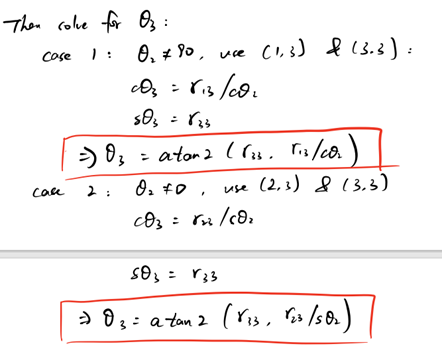 Then solve for θ₃ :
case 1 : θ₂ ≠ 90, use (1,3) & (3.3) :
cθ₃ = r₁₃/cθ₂
sθ₃ = r₃₃
⇒ θ₃ = atan2 (r₃₃, r₁₃/cθ₂)
case 2 : θ₂ ≠ 0, use (2,3) & (3,3)
cθ₃ = r₂₃/cθ₂
sθ₃ = r₃₃
⇒ θ₃ = atan2 (r₃₃, r₂₃/sθ₂)